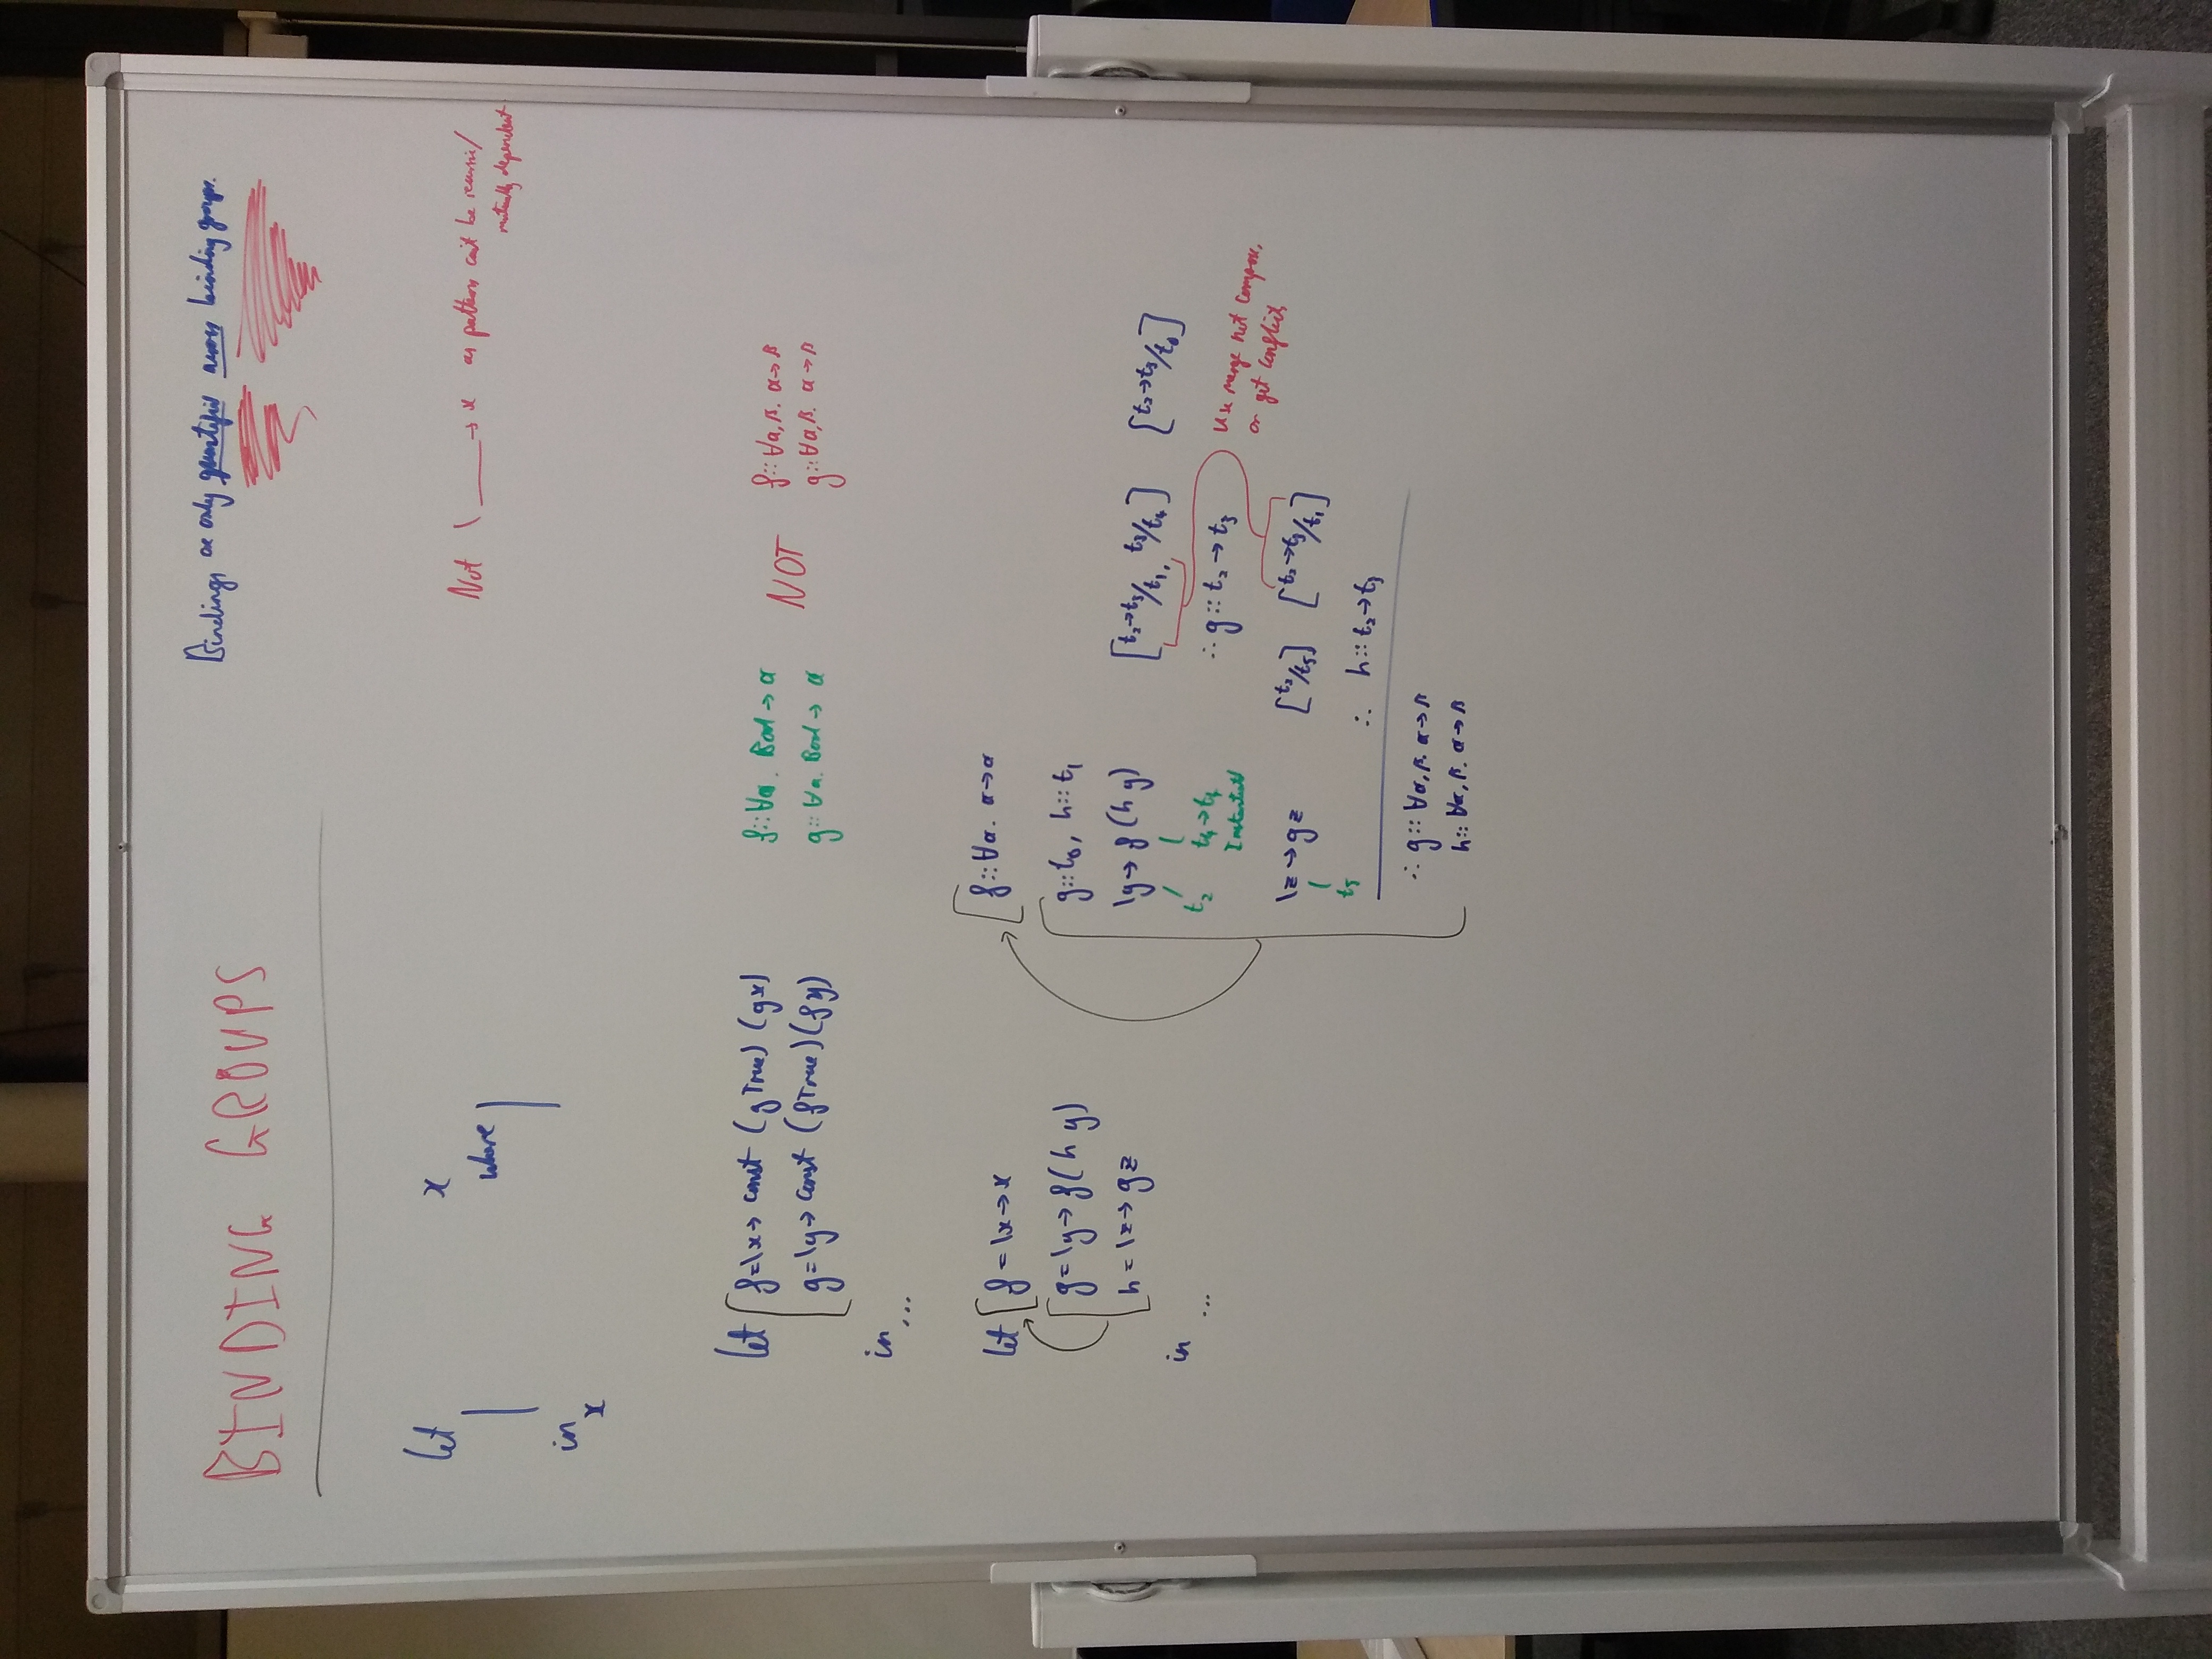 BINDING GROUPS
Bindings are only quantified across binding groups.
let
in
x
x
where
Not \ ____→ x as patterns can't be recursive/
mutually dependent
let f=\x→ const (g True) (g x)
g=\y→ const (f True) (f y)
in
...
f::∀α. Bool→α
g::∀α. Bool→α
NOT
f::∀α,β. α→β
g::∀α,β. α→β
let f = \x→x
g=\y→f(h y)
h = \z→gz
in
...
f::∀α. α→α
g::t₀, h::t₁
\y→ f (h y)
t₂
t₄→t₄
Instantiated
[t₂→t₃/t₁, t₃/t₄] [t₂→t₃/t₀]
∴ g::t₂→t₃
Use merge not compose,
or get conflicts
\z→gz [t₂/t₅] [t₂→t₃/t₁]
t₅
∴ h::t₂→t₃
∴ g::∀α,β. α→β
h::∀α,β. α→β